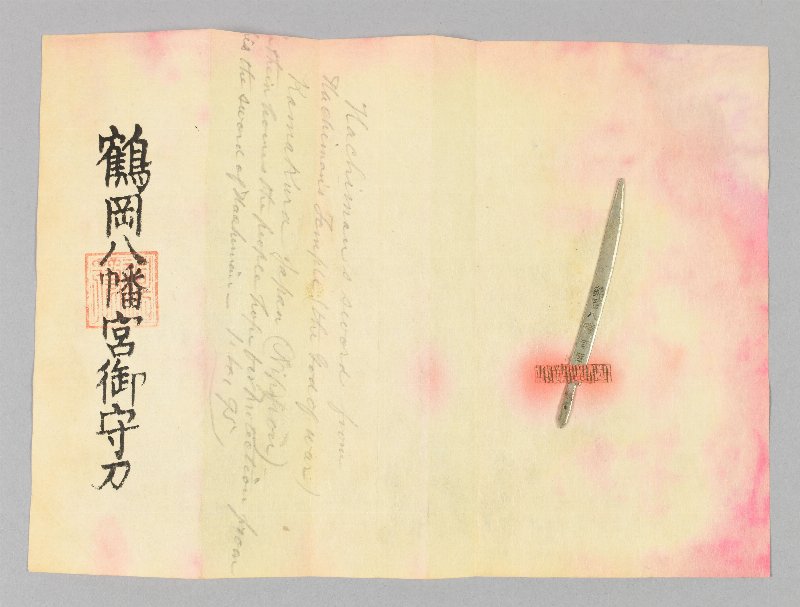 鶴岡八幡宮御守刀
Hachiman's sword from
Hachiman's Temple (the God of war)
Kamakura Japan (Nippon)
their homes the people hope for protection from
is the sword of Hachiman